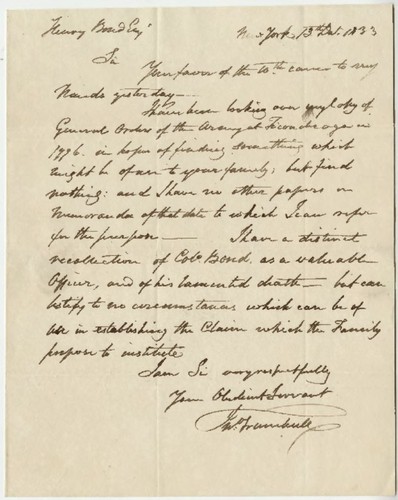 Henry Bond Esqr New York 13th Dec. 1833
Sir
Your favor of the 10th came to my
Hands yesterday—
I have been looking over my Copy of
General Orders of the Army at Ticonderoga in
1776. in hopes of finding something which
might be of use to your family; but find
nothing: and I have no other papers or
Memoranda of that date to which I can refer
for the purpose— I have a distinct
recollection of Col. Bond, as a valuable
Officer, and of his lamented death— but can
testify to no circumstances which can be of
use in establishing the Claim which the Family
propose to institute
I am Sir very respectfully
Your Obedient Servant
Jno. Trumbull